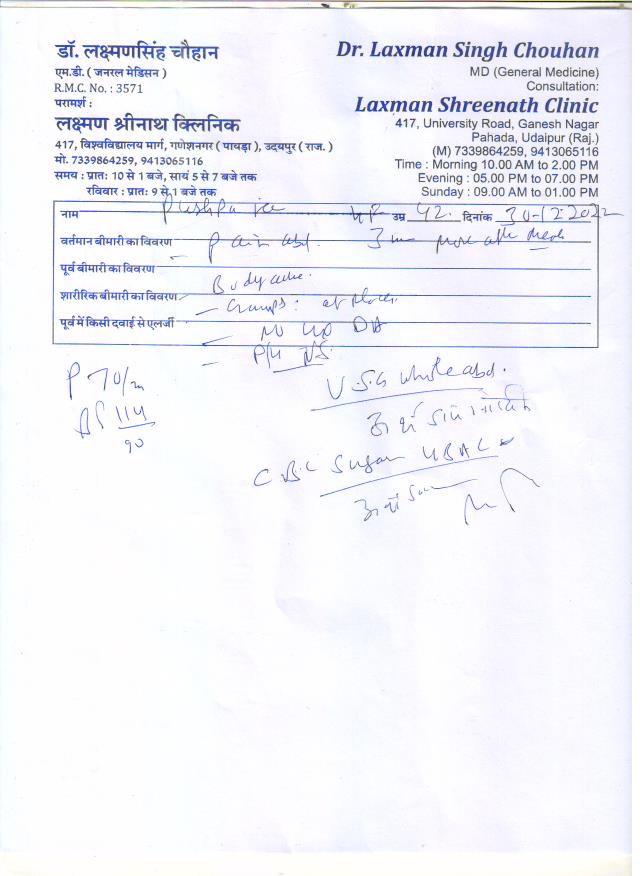 डॉ. लक्ष्मणसिंह चौहान
एम.डी. ( जनरल मेडिसन )
R.M.C. No. : 3571
परामर्श :
लक्ष्मण श्रीनाथ क्लिनिक
417, विश्वविद्यालय मार्ग, गणेशनगर ( पायड़ा ), उदयपुर ( राज. )
मो. 7339864259, 9413065116
समय : प्रातः 10 से 1 बजे, सायं 5 से 7 बजे तक
रविवार : प्रातः 9 से 1 बजे तक
Dr. Laxman Singh Chouhan
MD (General Medicine)
Consultation:
Laxman Shreenath Clinic
417, University Road, Ganesh Nagar
Pahada, Udaipur (Raj.)
(M) 7339864259, 9413065116
Time : Morning 10.00 AM to 2.00 PM
Evening : 05.00 PM to 07.00 PM
Sunday : 09.00 AM to 01.00 PM
नाम Pushpa उम्र 42. दिनांक 30-12-2022
वर्तमान बीमारी का विवरण Pain abd. 3 more after meals
पूर्व बीमारी का विवरण Bodyache.
शारीरिक बीमारी का विवरण Cramps: at places
पूर्व में किसी दवाई से एलर्जी No
P/H N.S.
P 70/m
114
90
U.S.G whole abd.
C.B.C Sugar